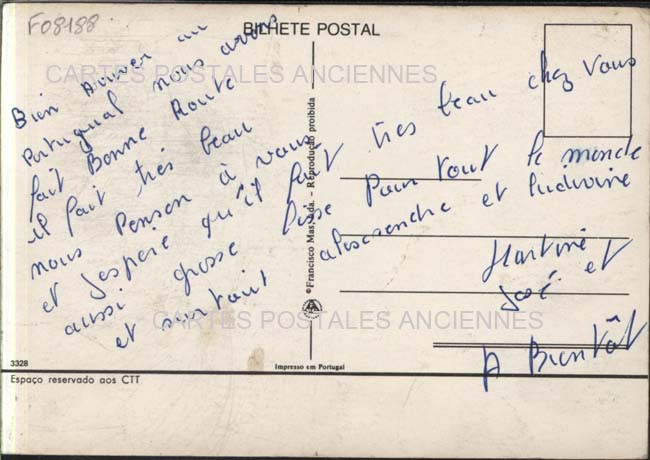 F08188
BILHETE POSTAL
CARTES POSTALES ANCIENNES
Bien Arriver au
Portugual nous avons
fait Bonne Route
il fait très beau
nous Penson à vous
et J'espère qu'il fait très beau chez vous
aussi grosse Bise Pour tout le monde
et surtout alescsendre et ludivine
Martine
José et
A Bientôt
CARTES POSTALES ANCIENNES
©Francisco Mas, Lda. - Reprodução proibida
Impresso em Portugal
3328
Espaço reservado aos CTT